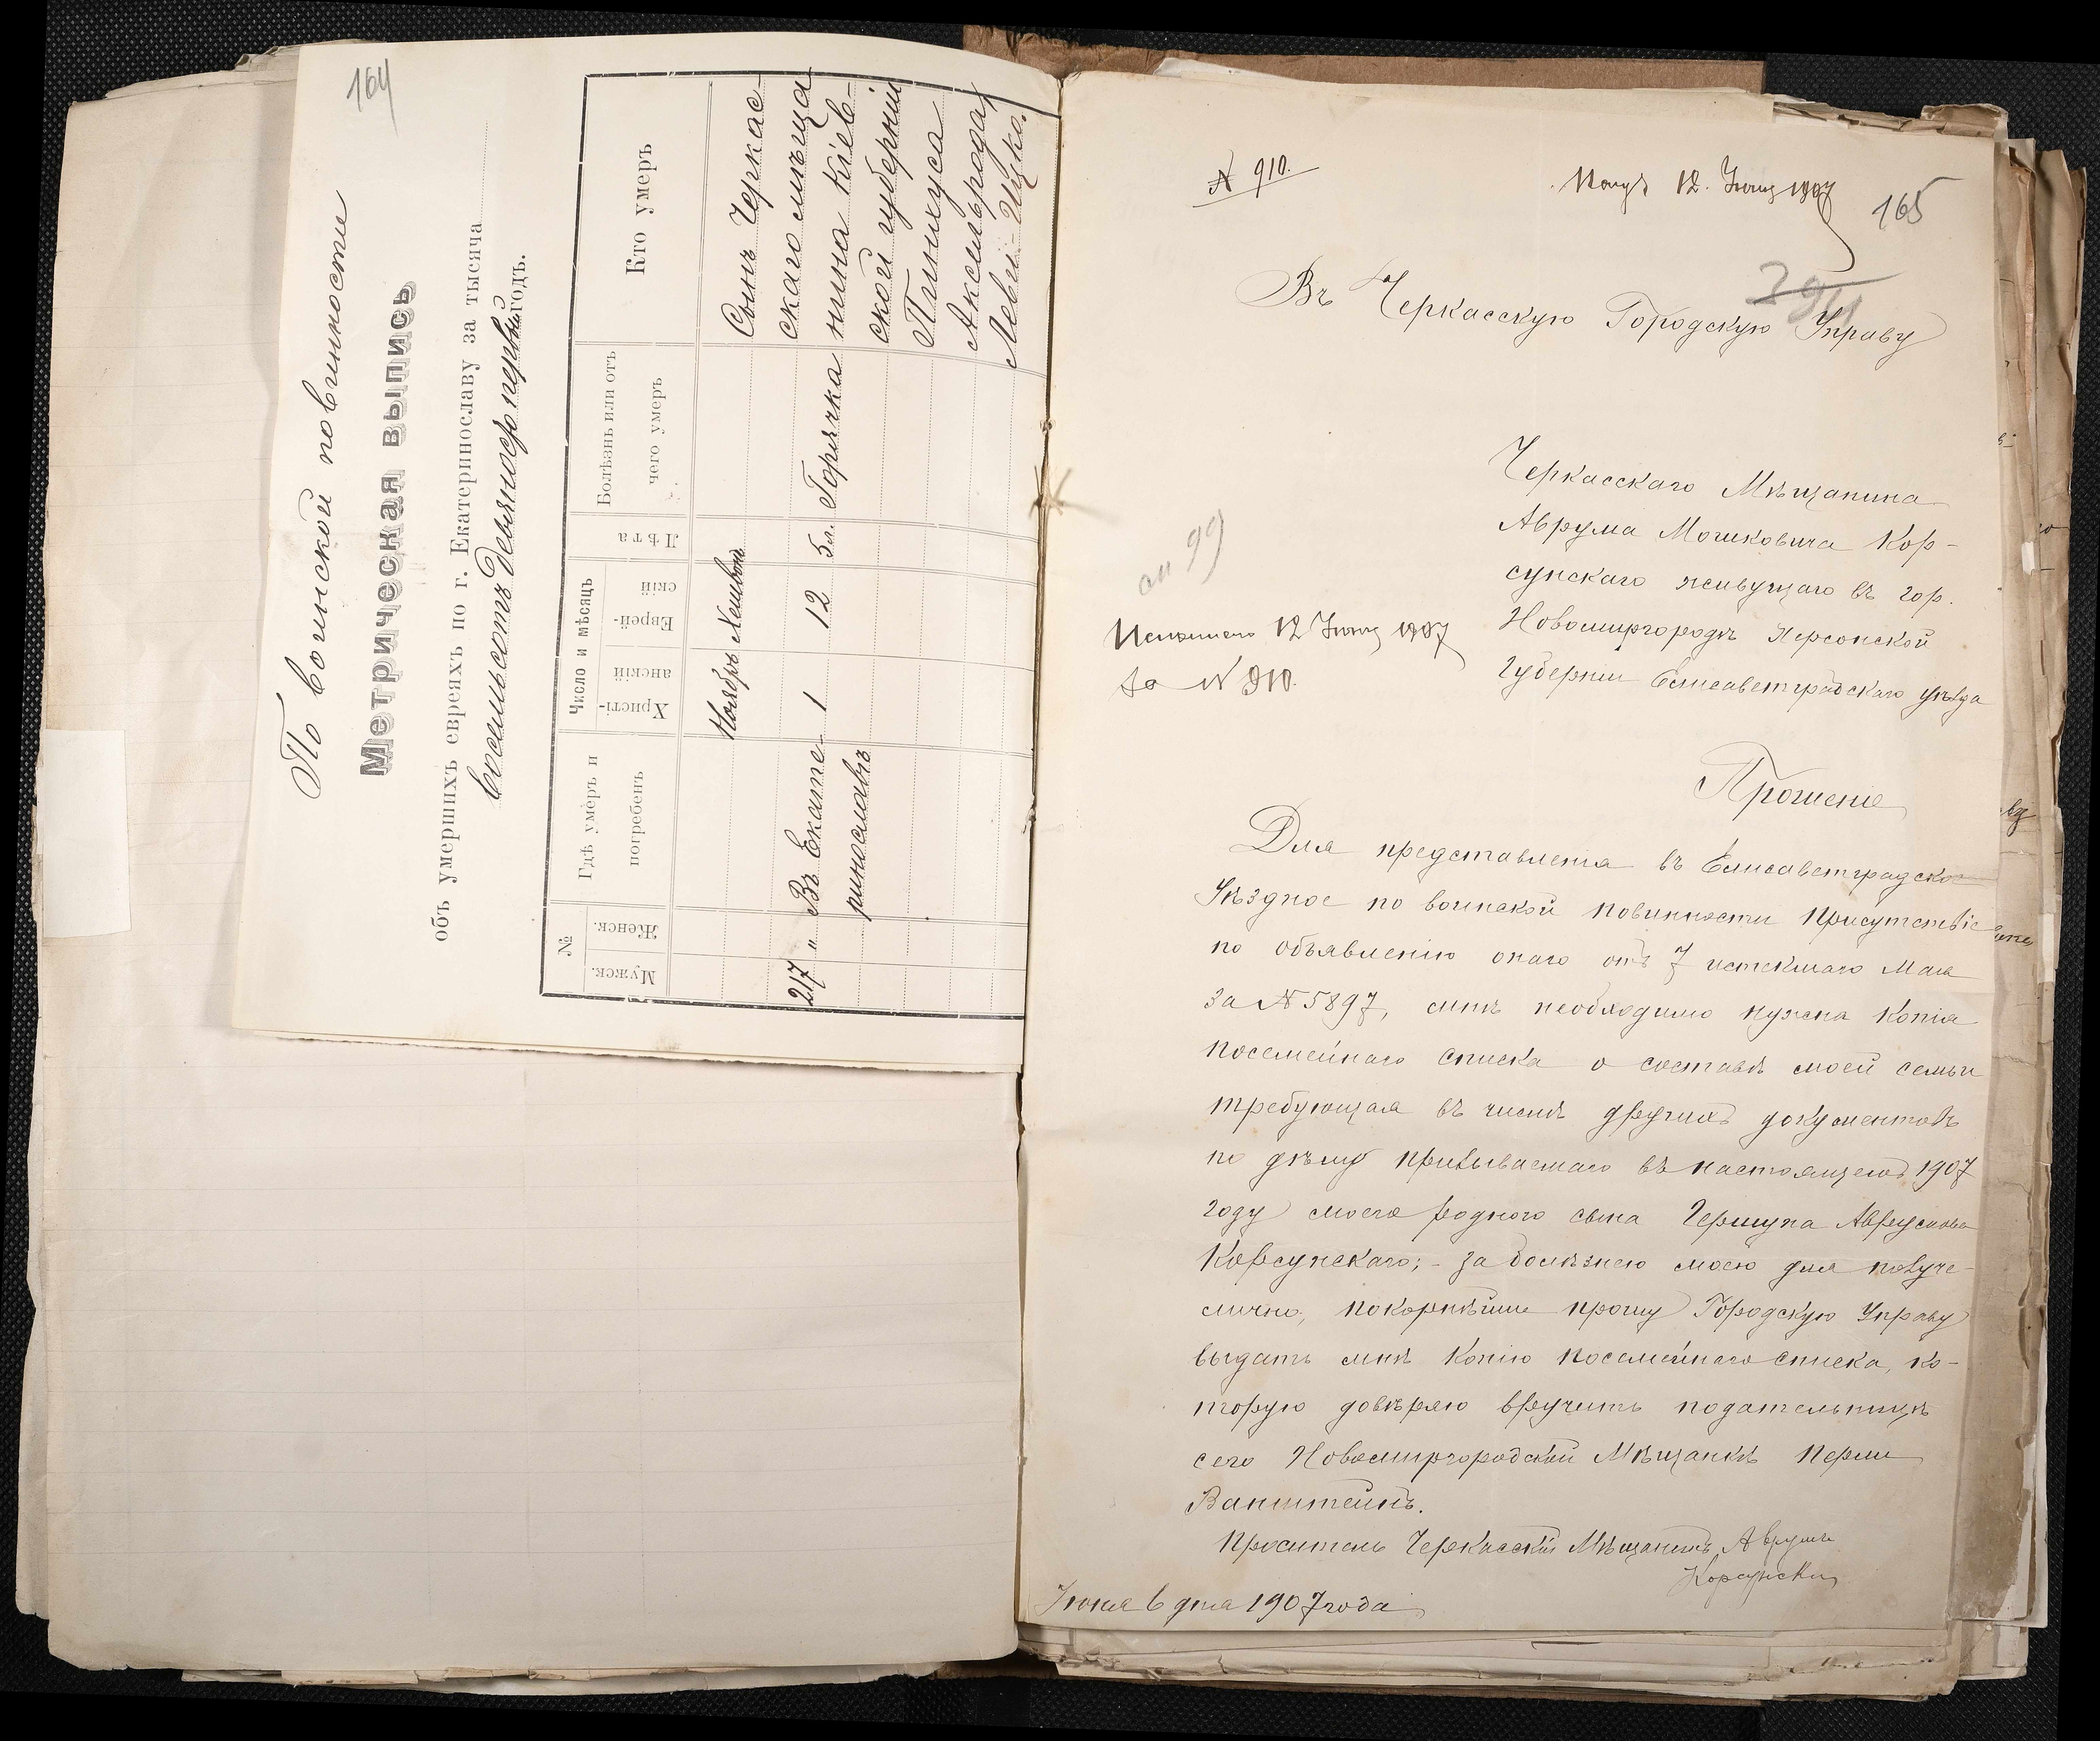 164
По воинской повинности
Метрическая выпись
объ умершихъ евреяхъ по г. Екатеринославу за тысяча
восемьсотъ девяносто первый годъ.
№
Мужск.
Женск.
Гдѣ умеръ и погребенъ
Число и мѣсяцъ
Христі-анскій
Еврей-скій
Лѣта
Болѣзнь или отъ чего умеръ
Кто умеръ
Ноябрь Хешвонъ
217 " Въ Екате-
ринославѣ
1
12
5 л.
Горячка
Сынъ Черкас-
скаго мѣща
нина Кіев-
ской губерніи
Пинхуса
Аксельрода
Леви-Ицко.
№ 910.
Получ 12 Іюня 1907
165
Въ Черкасскую Городскую Управу
Черкасскаго Мѣщанина
Аврума Мошковича Кор-
сунскаго живущаго въ гор.
Новомиргородѣ Херсонской
Губерніи Елисаветградскаго уѣзда
99
Исполнено 12 Іюня 1907
за № 910.
Прошеніе
Для представленія въ Елисаветградско
Уѣздное по воинской повинности Присутствіе
по объявленію онаго отъ 7 истекшаго Мая
за № 5897, мнѣ необходимо нужна копія
посемейнаго списка о составѣ моей семьи
требующая въ числѣ другихъ документовъ
по дѣлу призываемаго въ настоящемъ 1907
году моего роднаго сына Гершуна Аврумова
Корсунскаго; - за болѣзнею моею для получе-
лично, покорнѣйше прошу Городскую Управу
выдать мнѣ копію посемейнаго списка, ко-
торую довѣряю вручить подательницѣ
сего Новомиргородской Мѣщанкѣ Перли
Ванштейнъ.
Проситель Черкасскій Мѣщанинъ Аврумъ
Корсунскій
Іюня 6 дня 1907 года